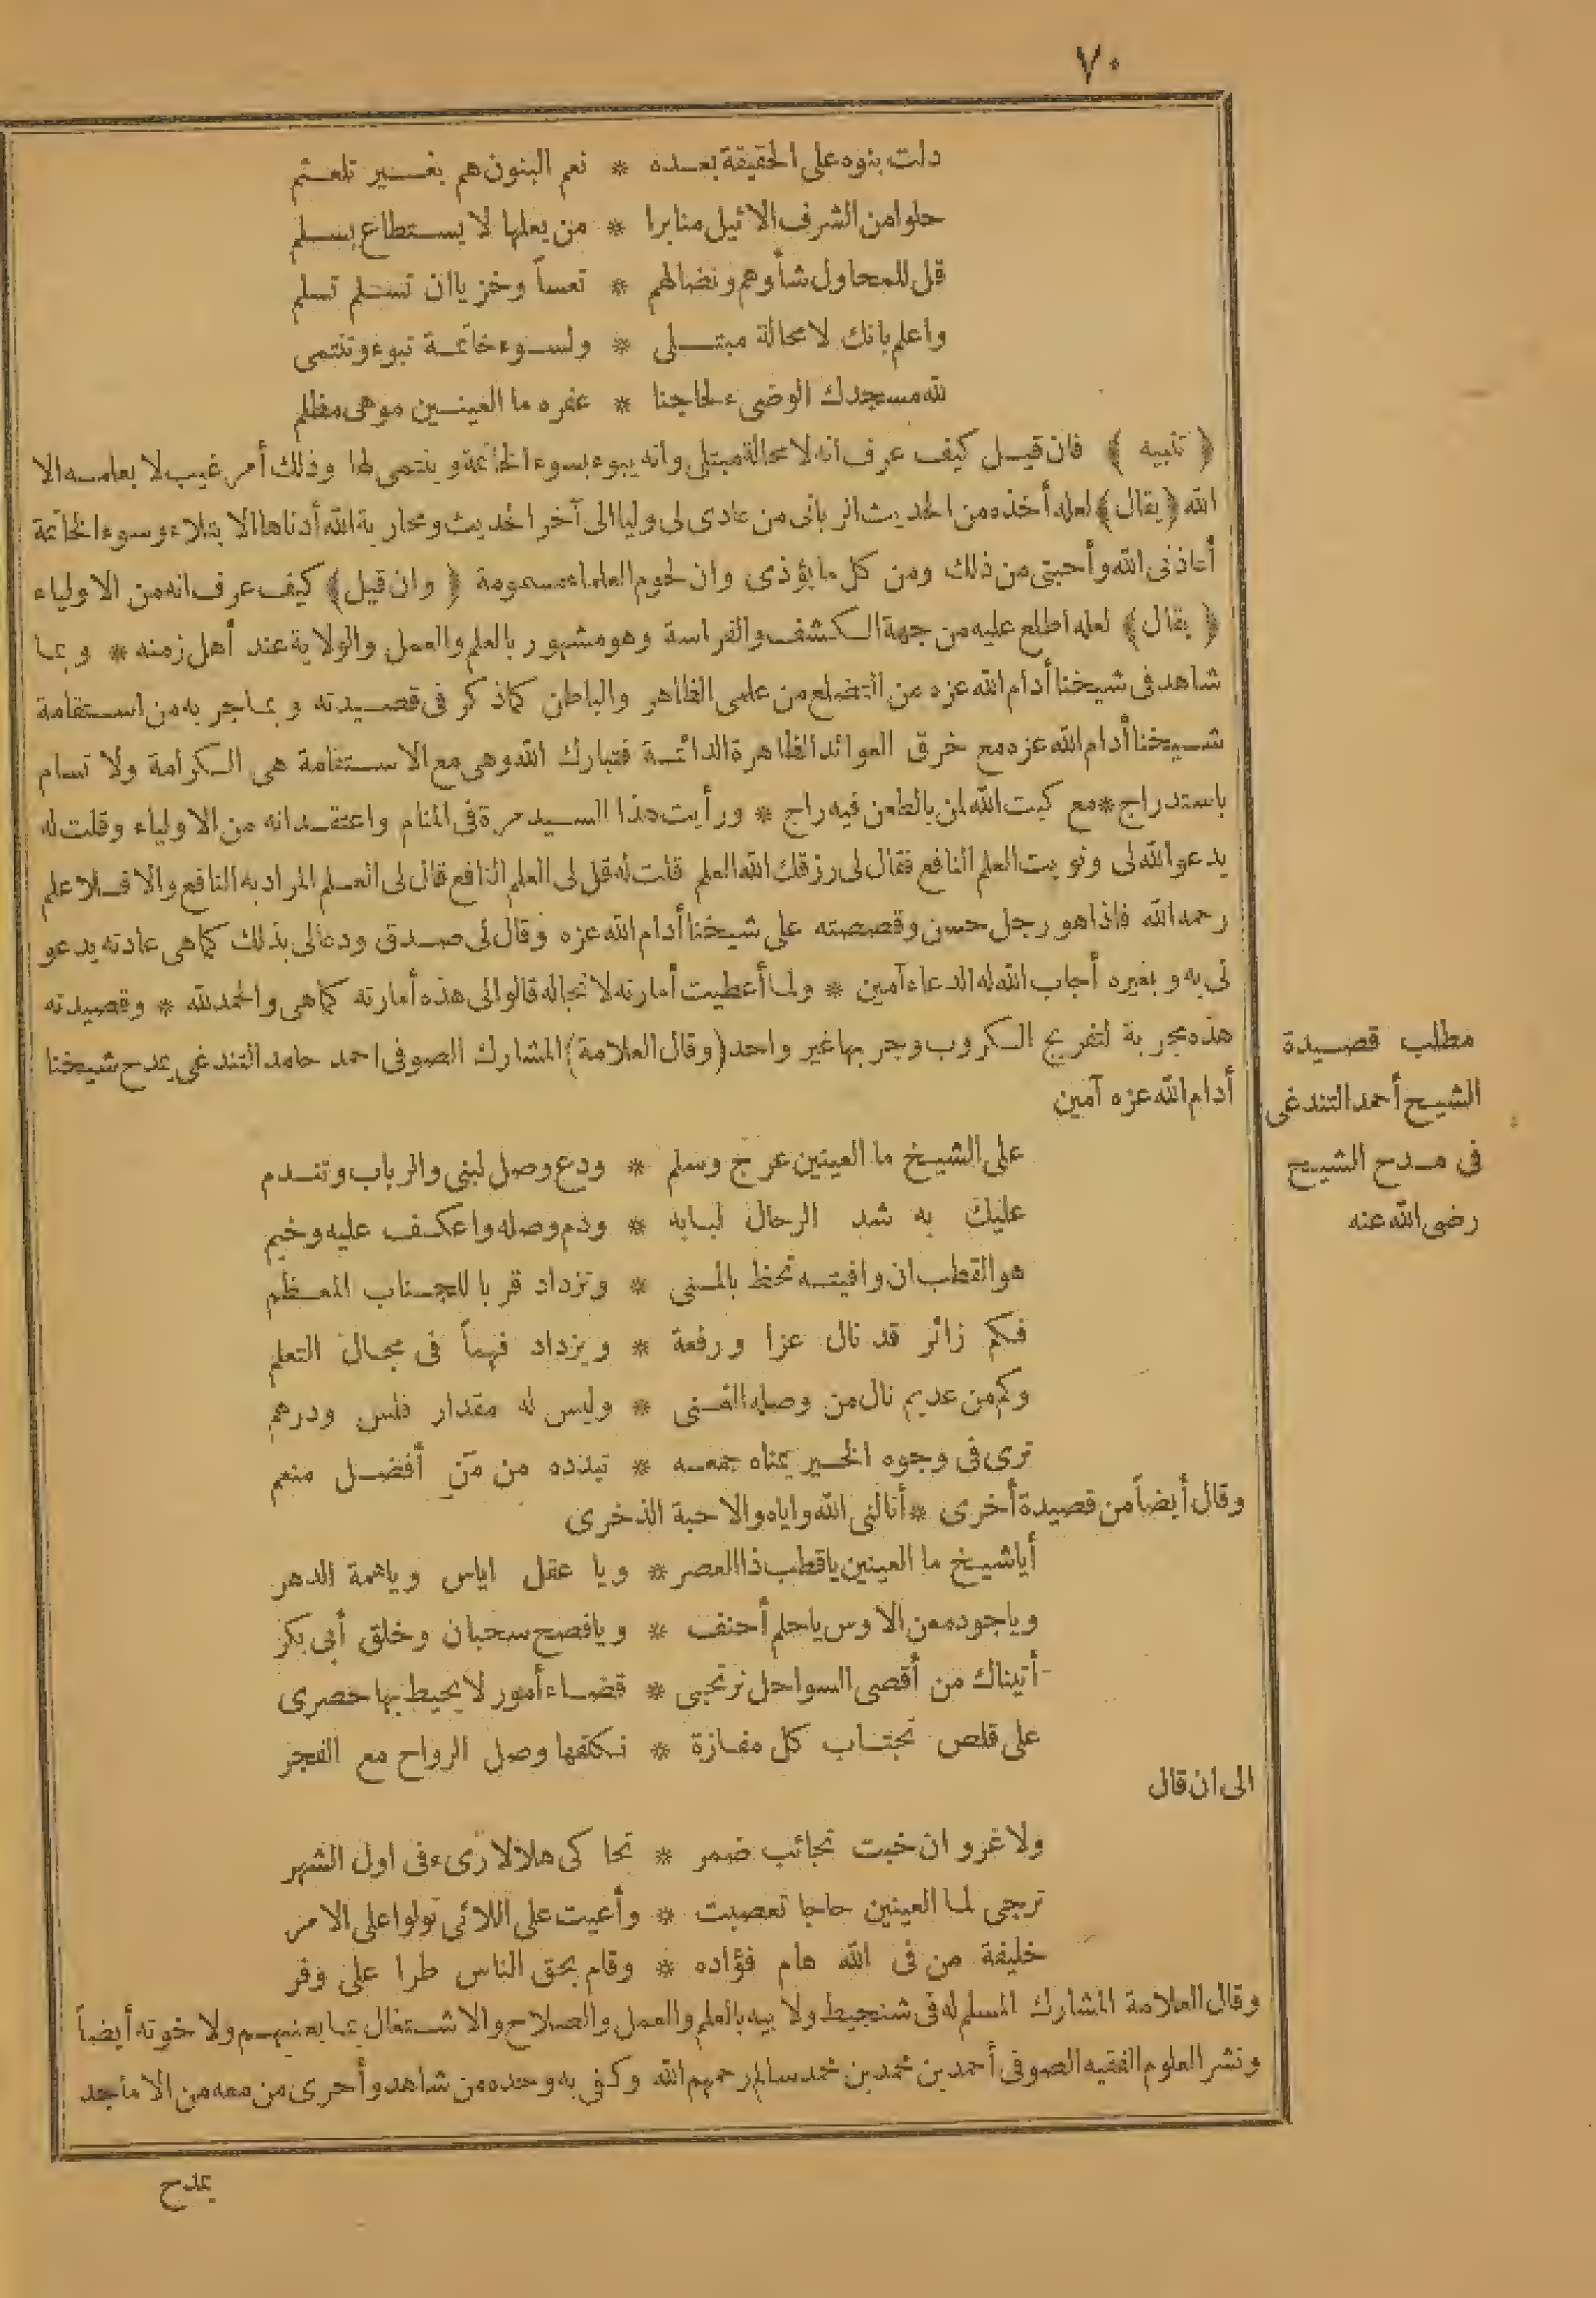 ٧٠
دلت بنوه على الحقيقة بعده * نعم البنون هم بغير تلعثم
حلوا من الشرف الاثيل منابرا * من يعلها لا يستطاع بسلم
قل للمحاول شأوهم ونضالهم * تعساً وخزيا ان تستلم تسلم
واعلم بانك لا محالة مبتلى * ولسوء خاتمة تبوء وتنتمى
لله مسجدك الوضىء لحاجنا * عفره ما العينين موهى مظلم
﴿ تنبيه ﴾ فان قيل كيف عرف انه لا محالة مبتلى وانه يبوء بسوء الخاتمة وينتمى لها وذلك أمر غيب لا يعلمه الا
الله ﴿ يقال ﴾ لعله أخذه من الحديث الربانى من عادى لى وليا الى آخر الحديث ومحاربة الله أدناها الابتلاء وسوء الخاتمة
أعاذنى الله وأحبتى من ذلك ومن كل ما يؤذى وان لحوم العلماء مسمومة ﴿ وان قيل ﴾ كيف عرف انه من الاولياء
﴿ يقال ﴾ لعله اطلع عليه من جهة الكشف والفراسة وهو مشهور بالعلم والعمل والولاية عند أهل زمنه * وبما
شاهد فى شيخنا أدام الله عزه من التضلع من علمى الظاهر والباطن كما ذكر فى قصيدته وبما جربه من استقامة
شيخنا أدام الله عزه مع خرق العوائد الظاهرة الدائمة فتبارك الله وهى مع الاستقامة هى الكرامة ولا تسام
باستدراج * مع كبت الله لمن بالطعن فيه راج * ورأيت هذا السيد مرة فى المنام واعتقد انه من الاولياء وقلت له
يدعو الله لى ونويت العلم النافع فقال لى رزقك الله العلم قلت له قل لى العلم النافع قال لى العلم المراد به النافع والا فلا علم
رحمه الله فاذا هو رجل حسن وقصصته على شيخنا أدام الله عزه وقال لى صدق ودعا لى بذلك كما هى عادته يدعو
لى به وبغيره أجاب الله له الدعاء آمين * ولما أعطيت أمارته لانجاله قالوا لى هذه أمارته كما هى والحمد لله * وقصيدته
هذه مجربة لتفريج الكروب وجربها غير واحد (وقال العلامة) المشارك الصوفى احمد حامد التندغى يمدح شيخنا
أدام الله عزه آمين
مطلب قصيدة
الشيخ أحمد التندغى
فى مدح الشيخ
رضى الله عنه
على الشيخ ما العينين عرج وسلم * ودع وصل لبنى والرباب وتندم
عليك به شد الرحال لبابه * ودم وصله واعكف عليه وخيم
هو القطب ان وافيته تحظ بالمنى * وتزداد قربا للجناب المعظم
فكم زائر قد نال عزا ورفعة * ويزداد فهماً فى مجال التعلم
وكم من عديم نال من وصله الغنى * وليس له مقدار فلس ودرهم
ترى فى وجوه الخير يمناه جمعه * تبدده من مَن أفضل منعم
وقال أيضاً من قصيدة أخرى * أنالنى الله واياه والاحبة الذخرى
أيا شيخ ما العينين يا قطب ذا العصر * ويا عقل اياس ويا همة الدهر
ويا جود معن الاوس يا حلم أحنف * ويا فصح سحبان وخلق أبى بكر
أتيناك من أقصى السواحل نرتجى * قضاء أمور لا يحيط بها حصرى
على قلص تجتاب كل مفازة * نكلفها وصل الرواح مع الفجر
الى ان قال
ولا غرو ان خبت نجائب ضمر * تحاكى هلالا رىء فى اول الشهر
ترجى لما العينين حاجا تعصبت * وأعيت على اللائى تولوا على الامر
خليفة من فى الله هام فؤاده * وقام بحق الناس طرا على وفر
وقال العلامة المشارك المسلم له فى شنجيط ولابيه بالعلم والعمل والصلاح والاشتغال بما يعنيهم ولاخوته أيضاً
ونشر العلوم الفقيه الصوفى أحمد بن محمد بن محمد سالم رحمهم الله وكفى به وحده من شاهد وأحرى من معه من الاماجد
يمدح